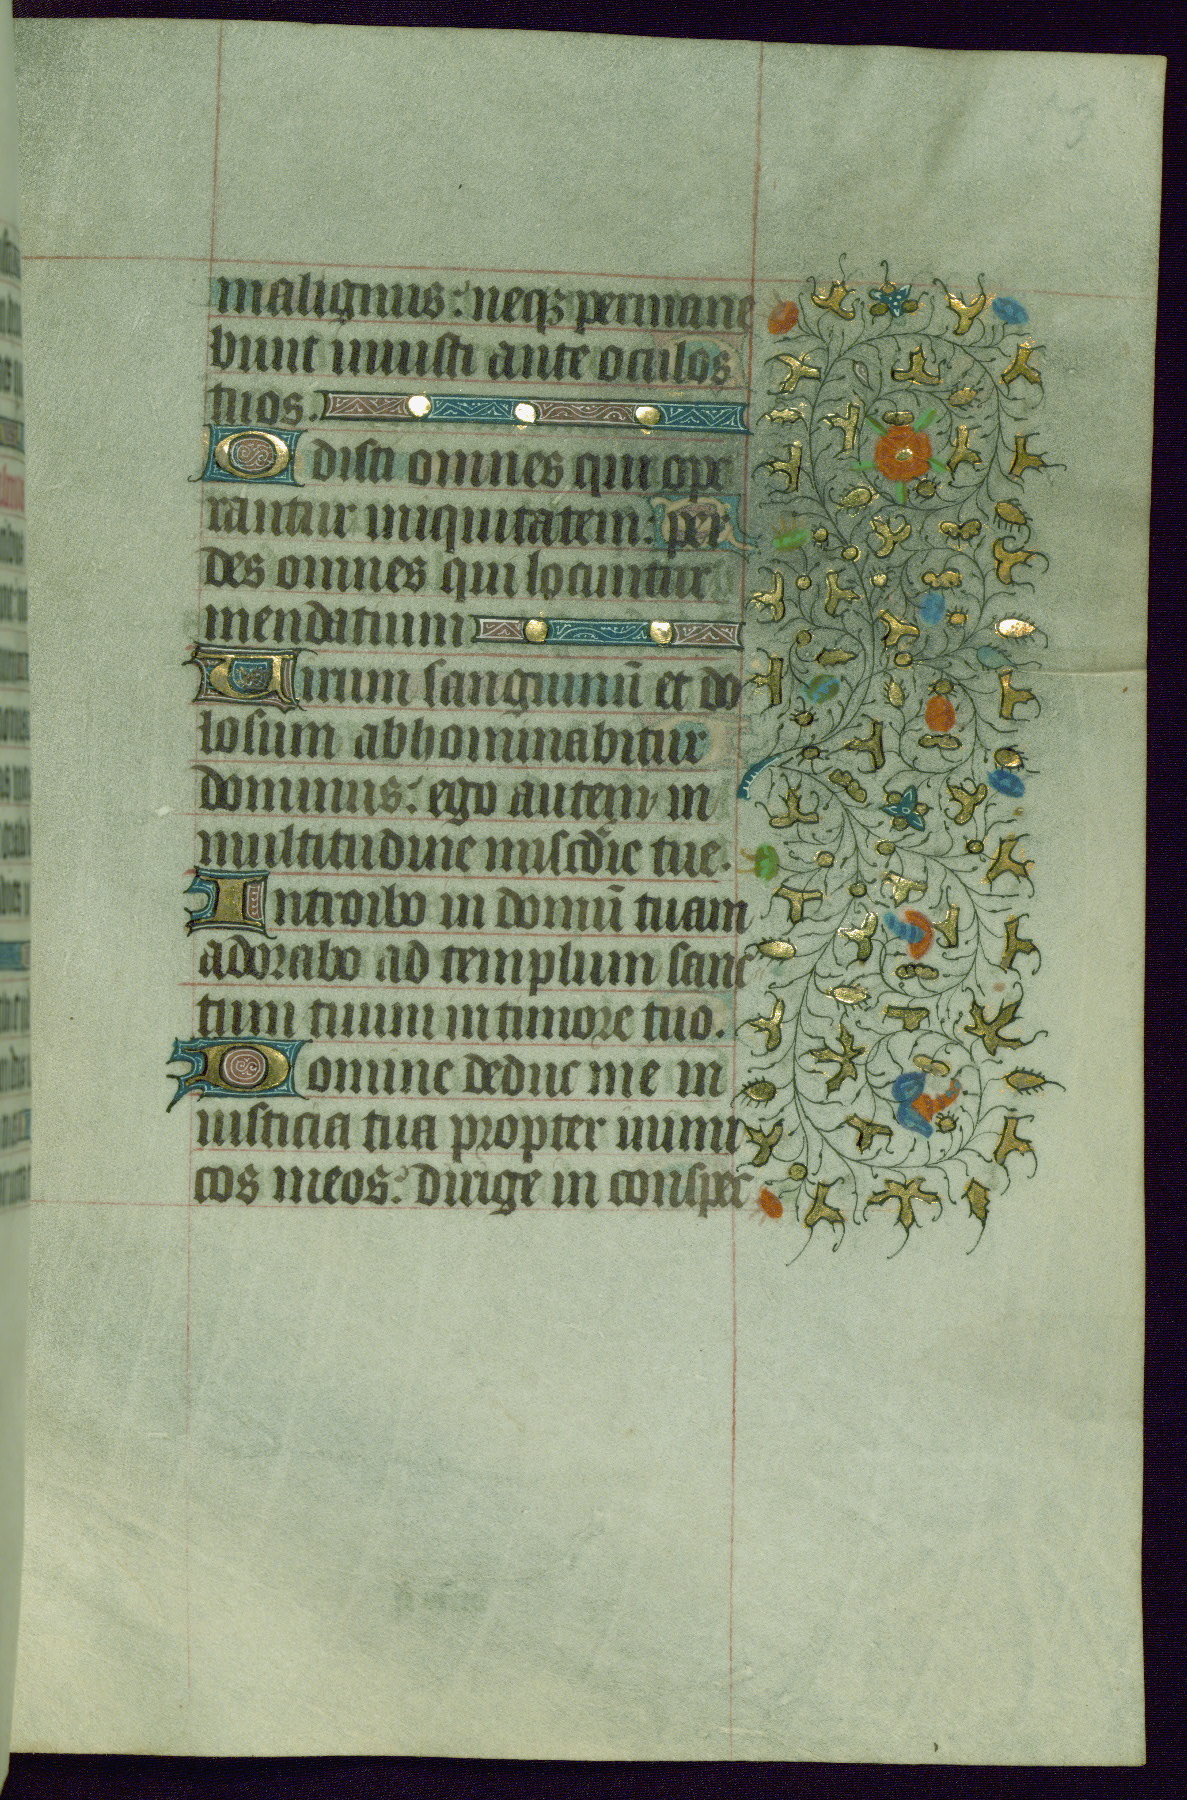 malignus: neqꝫ permane
bunt iniusti ante oculos
tuos.
Odisti omnes qui ope
rantur iniquitatem: per
des omnes qui locuntur
mendatium
Uirum sanguinū et do
losum abhominabitur
dominus: ego autem in
multitudine misc̄die tue.
Introibo in domū tuam
adorabo ad templum sanc
tum tuum in timore tuo.
Domine deduc me in
iusticia tua propter inimi
cos meos: dirige in conspec